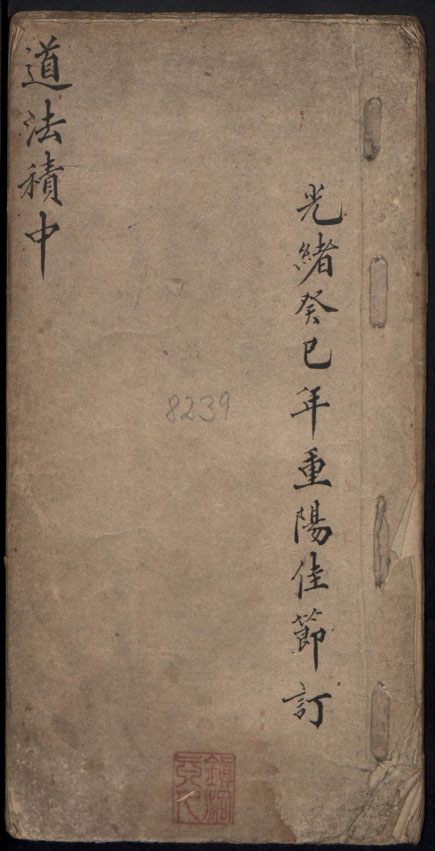 光緒癸巳年重陽佳節訂
道法積中
8239